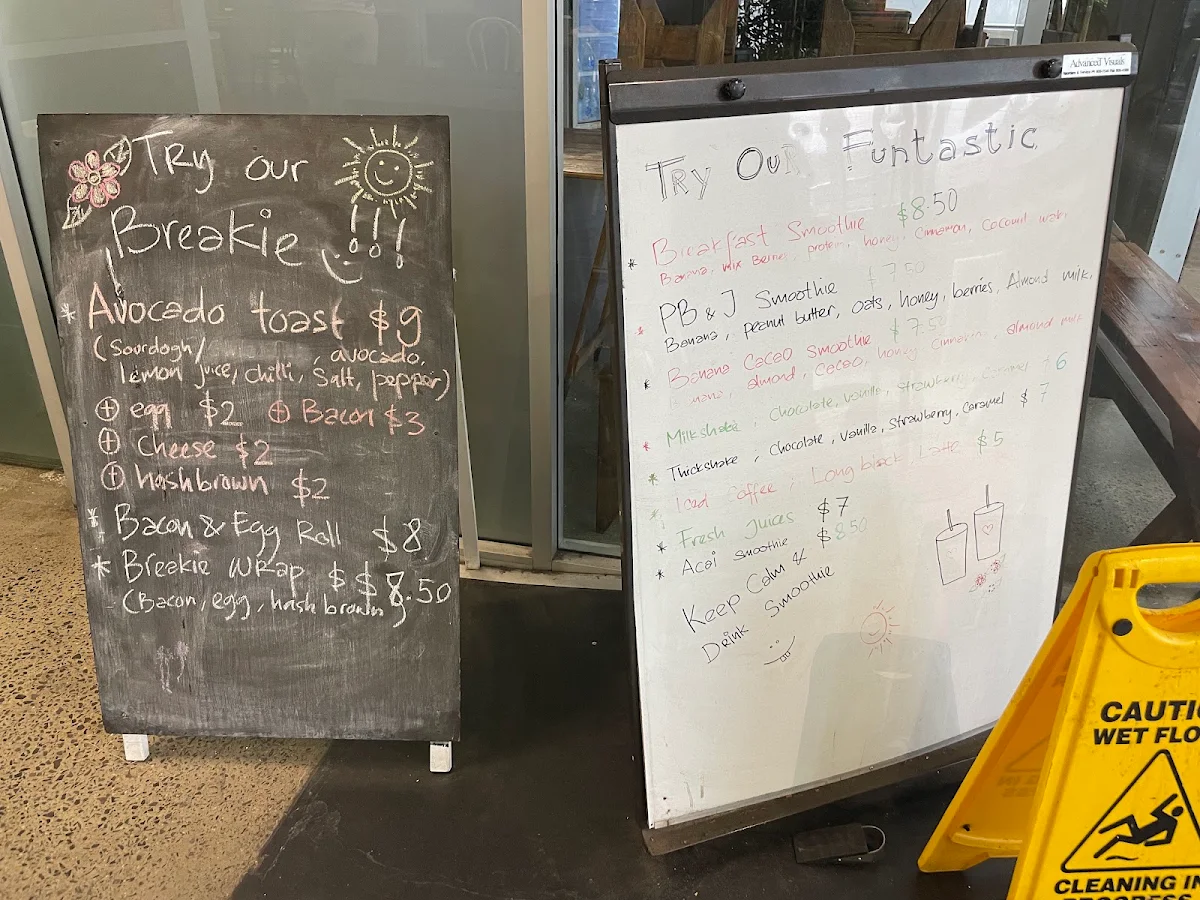 Try our
Breakie !!!
* Avocado toast $9
(Sourdogh/ , avocado,
lemon juice, chilli, Salt, pepper)
⊕ egg $2 ⊕ Bacon $3
⊕ Cheese $2
⊕ hashbrown $2
* Bacon & Egg Roll $8
* Breakie Wrap $ $8.50
(Bacon, egg, hash brown)
Advanced Visuals
Try Our Funtastic
* Breakfast Smoothie $8.50
Banana, mix Berries, protein, honey, Cinnamon, Coconut water
* PB & J Smoothie $7.50
Banana, peanut butter, oats, honey, berries, Almond milk,
* Banana Cacao smoothie $7.50
almond, cacao, honey, cinnamon, almond milk
* Milkshake, Chocolate, Vanilla, Strawberry, Caramel 6
* Thickshake, Chocolate, Vanilla, Strawberry, Caramel $7
* Iced Coffee, Long black Latte $5
* Fresh Juices $7
* Acai smoothie $8.50
Keep Calm &
Drink Smoothie
CAUTIO
WET FLO
CLEANING IN
PROGRESS